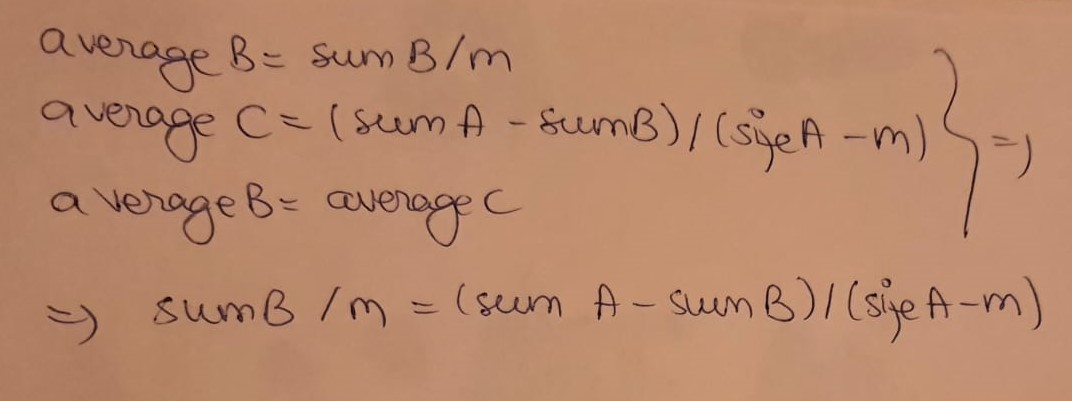 average B = sum B/m
average C = (sum A - sumB) / (size A - m) } =>
average B = average C
=> sumB / m = (sum A - sum B) / (size A - m)